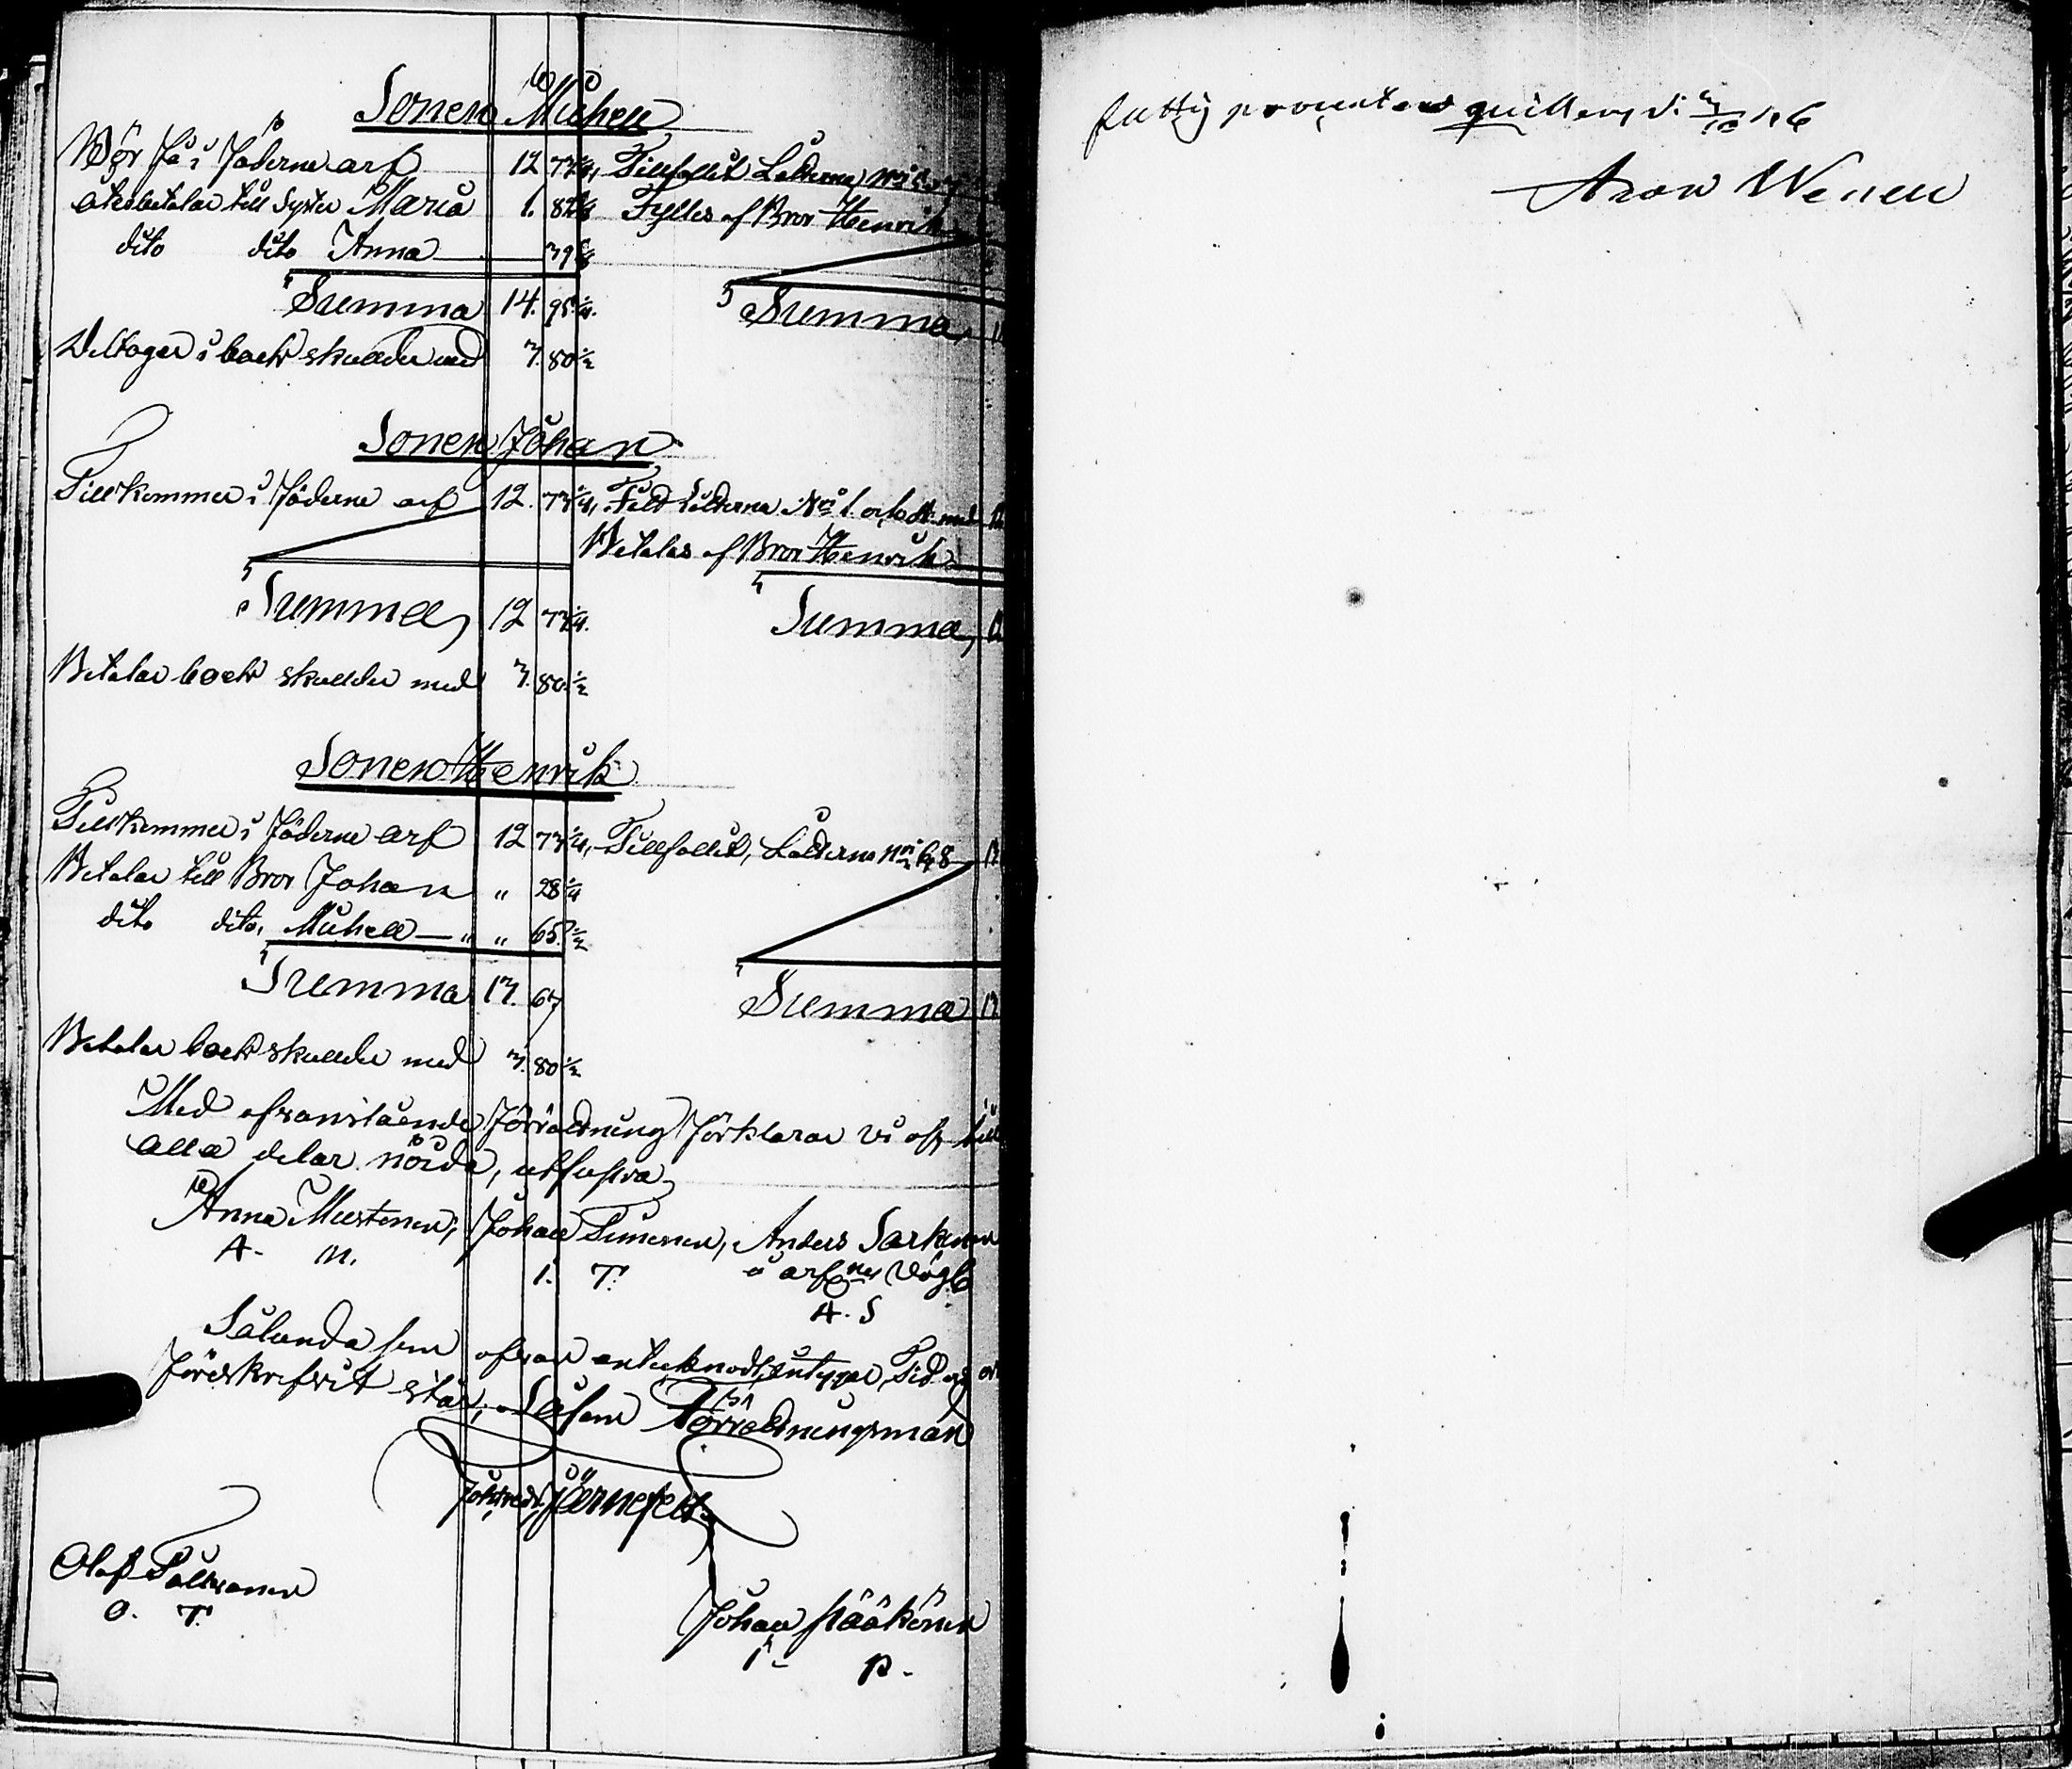 Sonen Michell
Bör få i Föderne arf 12 73 1/4, Tillfallit Lotterne
återbetalar till Syster Maria 1. 82 Fylles af Bror Henrik
dito dito Anna 39
Summa 14. 95 1/4. Summa
Deltager i boets skulder med 3. 80 1/2
Sonen Johan
Tillkommer i Föderne arf 12. 73 1/4, Lotterne
Betalas af Bror Henrik
Summa 12 73 1/4. Summa
Betalar boets skulder med 3. 80 1/2
Sonen Henrik
Tillkommer i Föderne arf 12 73 1/4, Tillfallit, Lotterne
Betalar till Bror Johan " 28 1/4
dito dito, Michell — " " 65 1/2
Summa 13. 67 Summa 13
Betalar boets skulder med 3. 80 1/2
Med ofvanstående förrättning förklarar vi oss till
alla delar nöjda, utfästra
Anna Mustonen, Johan Timonen, Anders Sarkinen
A. M. I. T. A. S
Sålunda som ofvan antecknadt, Tid och
föreskrefvit står, Förrättningsman
Järnefelt
Olof Tolkkanen
O. T.
Johan Pääkönen
I. P.
fattig procenten qvitteras
Aron Wenell